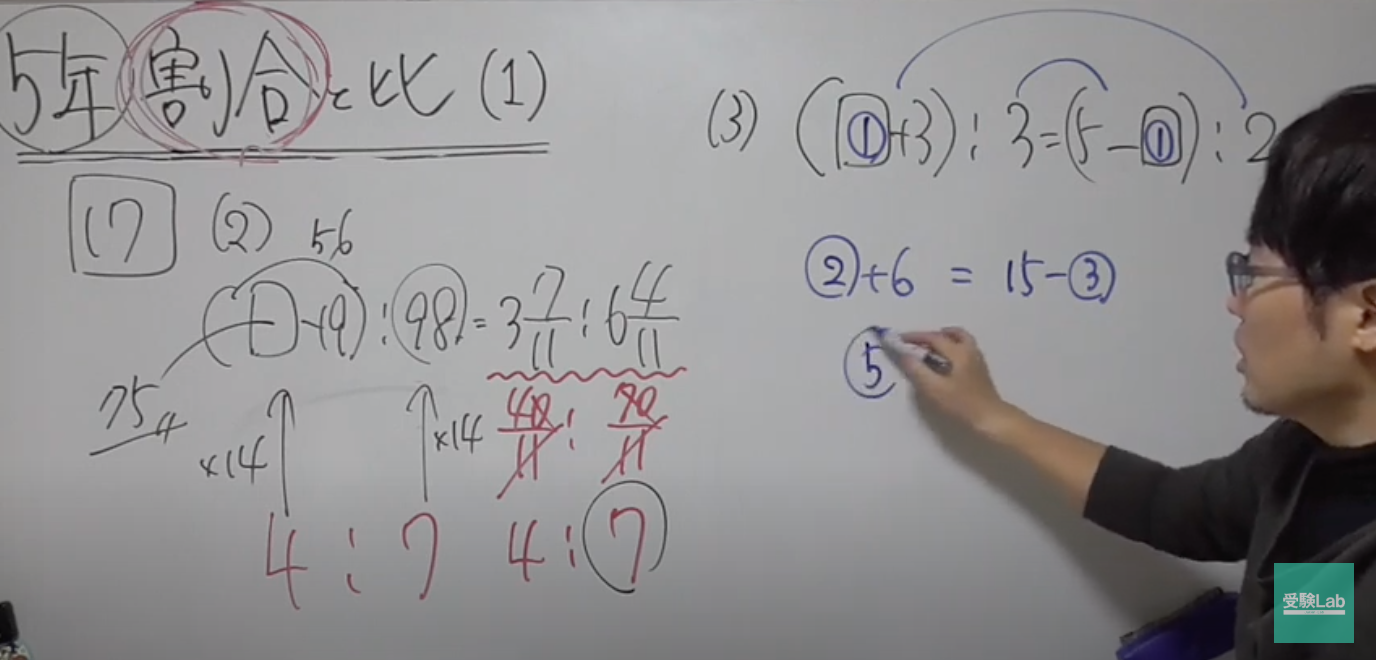 5年 割合と比 (1)
17 (2) 56
(□-19) : 98 = 3 7/11 : 6 4/11
75
×14 ×14 40/11 : 70/11
4 : 7 4 : 7
(3) (①+3) : 3 = (5-①) : 2
②+6 = 15-③
⑤
受験Lab